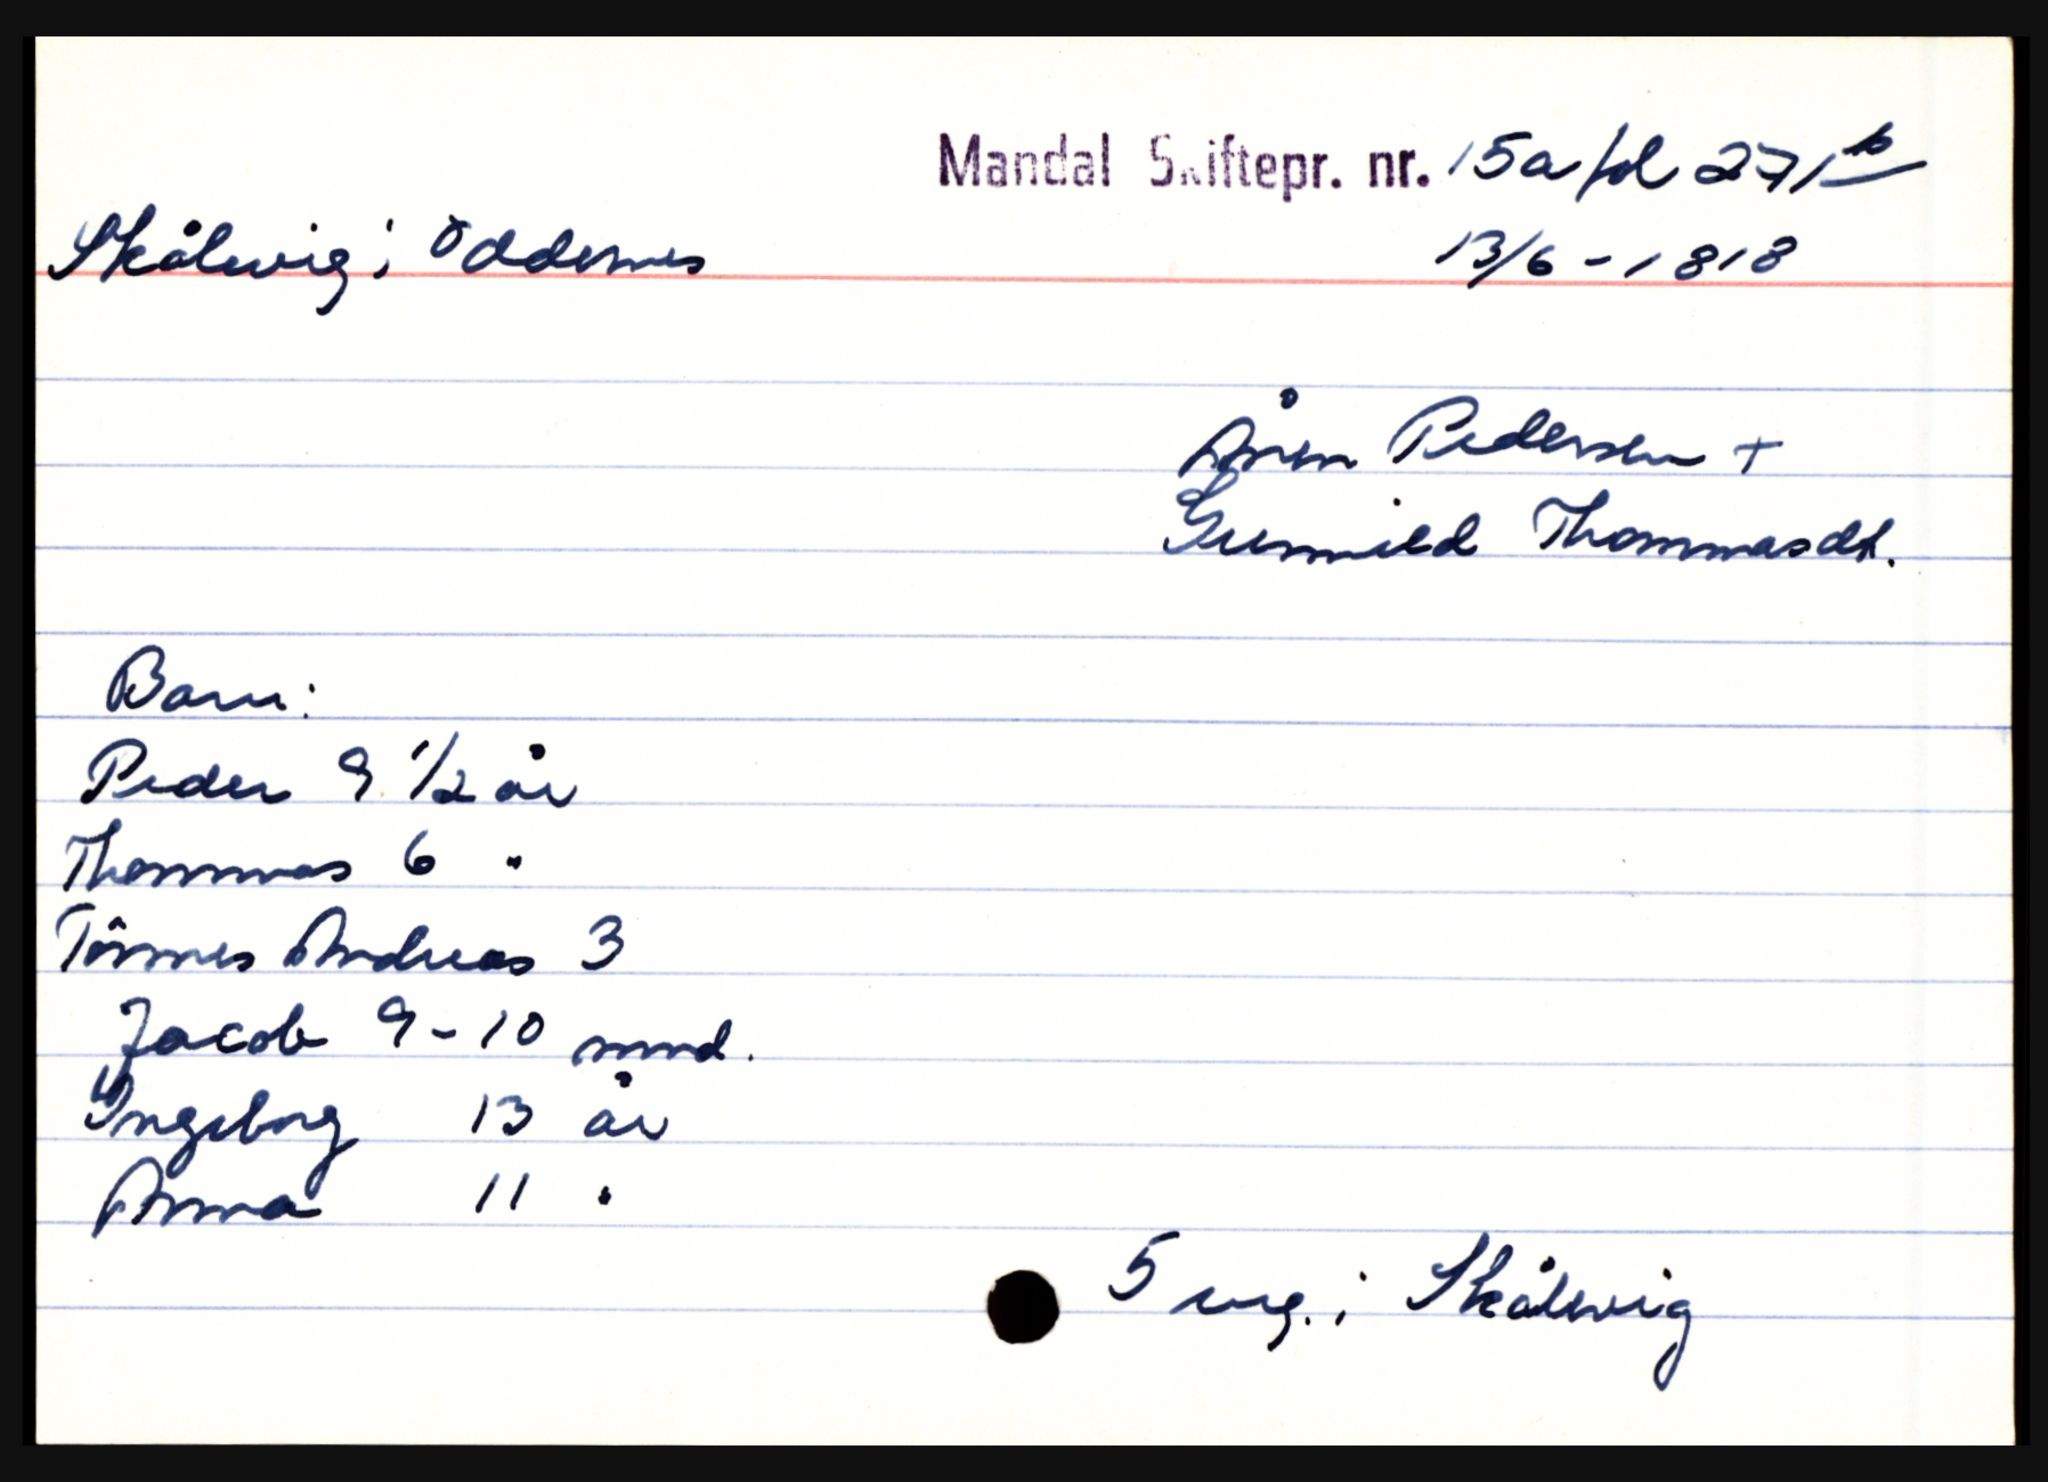 Mandal Skiftepr. nr. 15a fol 271 b
Skålevig i Öddernes 13/6 - 1818
Ånen Pedersen +
Gunnild Thommasdt.
Barn:
Peder 9 1/2 år
Thommas 6 "
Tönnes Andreas 3
Jacob 9-10 mnd.
Ingeborg 13 år
Anna 11 "
5 ung. i Skålevig